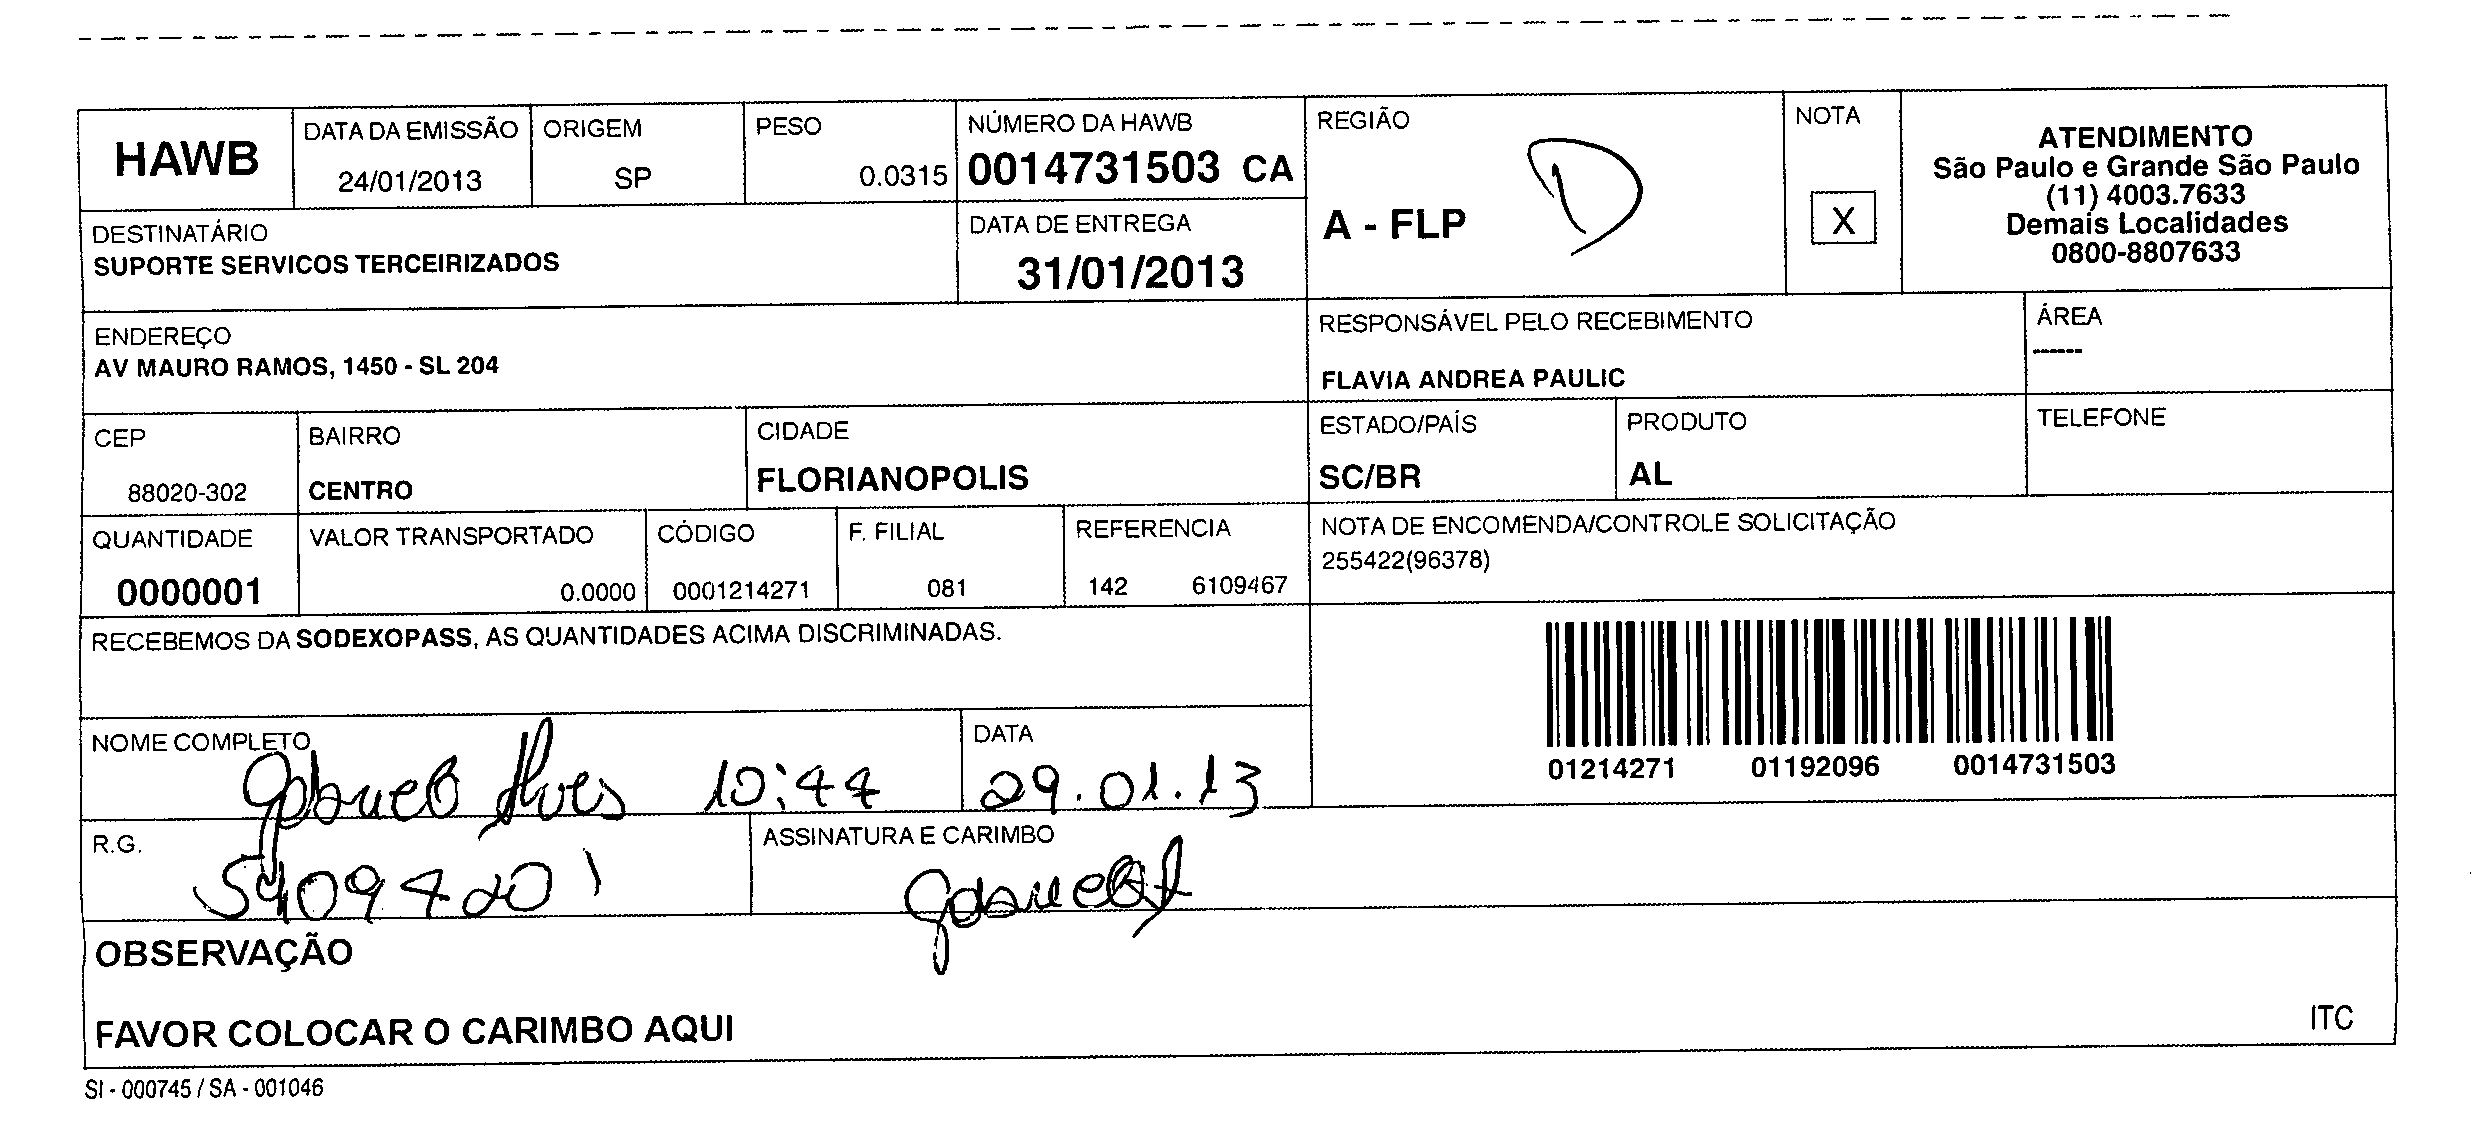 HAWB
DATA DA EMISSÃO
24/01/2013
ORIGEM
SP
PESO
0.0315
NÚMERO DA HAWB
0014731503 CA
REGIÃO
A - FLP
D
NOTA
X
ATENDIMENTO
São Paulo e Grande São Paulo
(11) 4003.7633
Demais Localidades
0800-8807633
DESTINATÁRIO
SUPORTE SERVICOS TERCEIRIZADOS
DATA DE ENTREGA
31/01/2013
ENDEREÇO
AV MAURO RAMOS, 1450 - SL 204
RESPONSÁVEL PELO RECEBIMENTO
FLAVIA ANDREA PAULIC
ÁREA
------
CEP
88020-302
BAIRRO
CENTRO
CIDADE
FLORIANOPOLIS
ESTADO/PAÍS
SC/BR
PRODUTO
AL
TELEFONE
QUANTIDADE
0000001
VALOR TRANSPORTADO
0.0000
CÓDIGO
0001214271
F. FILIAL
081
REFERENCIA
142 6109467
NOTA DE ENCOMENDA/CONTROLE SOLICITAÇÃO
255422(96378)
RECEBEMOS DA SODEXOPASS, AS QUANTIDADES ACIMA DISCRIMINADAS.
01214271 01192096 0014731503
NOME COMPLETO
Gabriel Alves 10:44
DATA
29.01.13
R.G.
ASSINATURA E CARIMBO
OBSERVAÇÃO
FAVOR COLOCAR O CARIMBO AQUI
ITC
SI - 000745 / SA - 001046